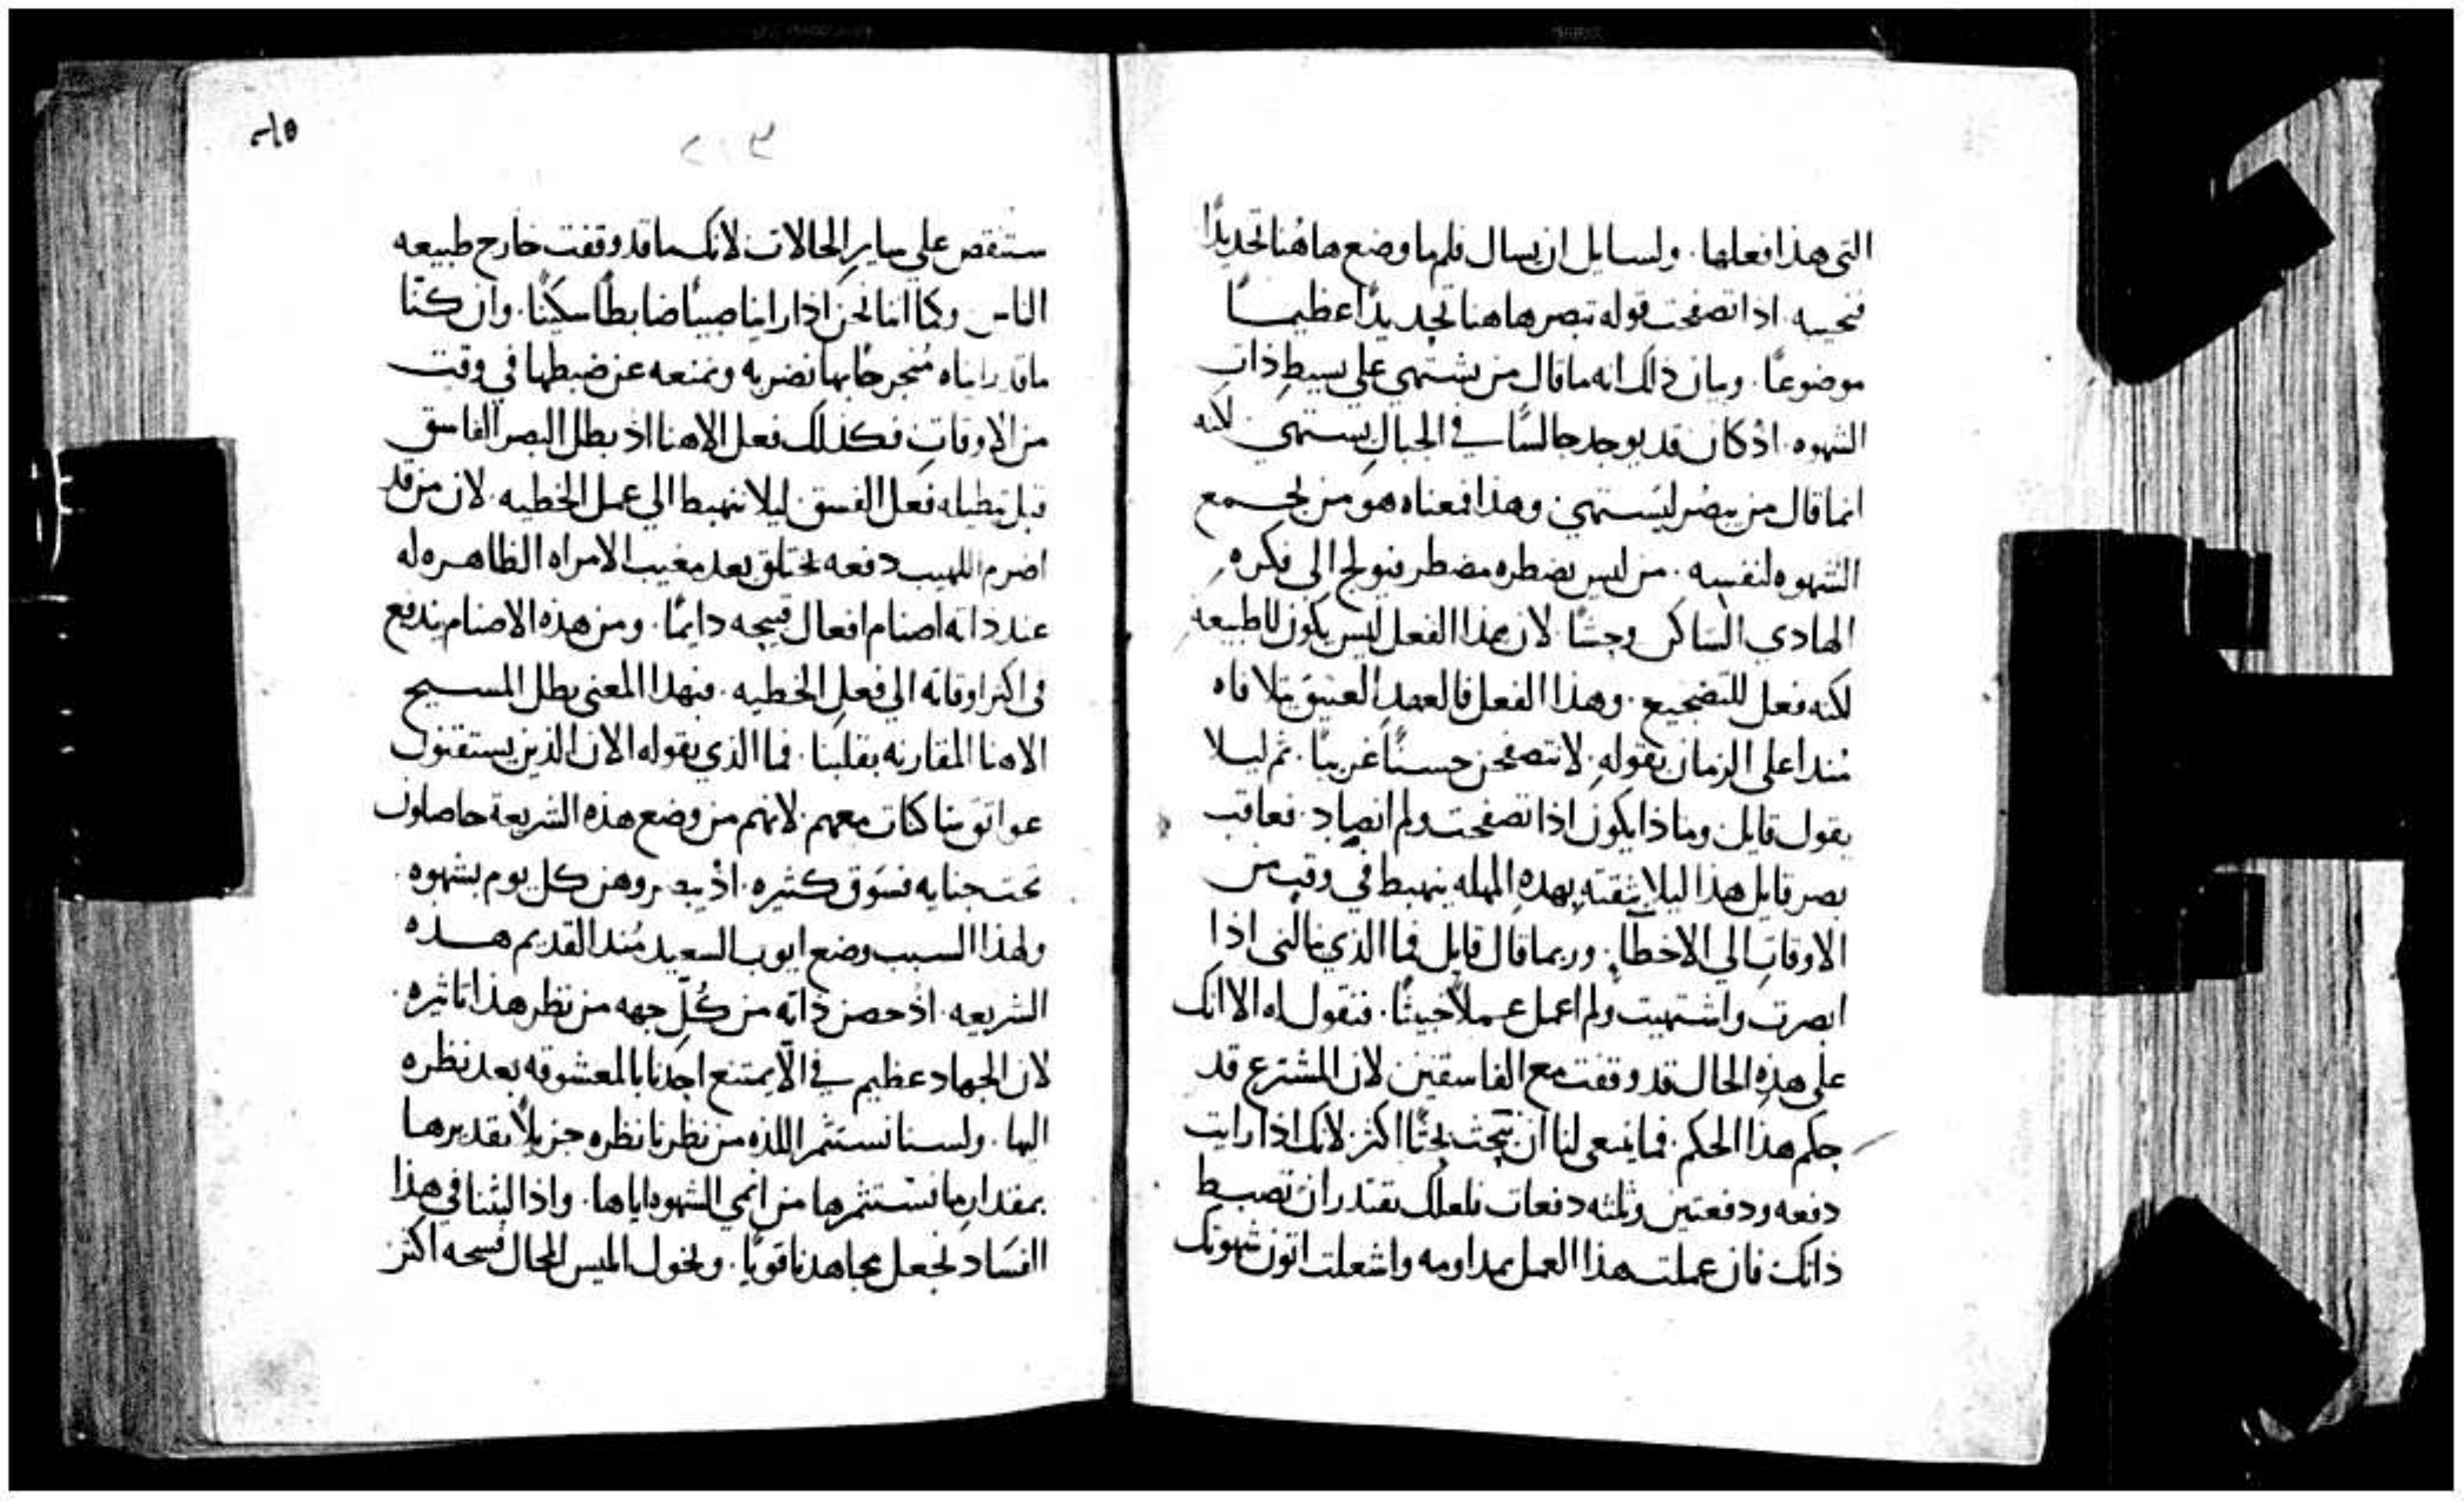 التي هذا فعلها . ولسايل ان يسال فلم ما وضع هاهنا تحديدًا
فنجيبه . اذا تصفحت قوله تبصر هاهنا تحديدًا عظيمًا
موضوعًا . وبيان ذلك انه ما قال من يشتهي على بسيط ذات
الشهوه . اذ كان قد يوجد جالسًا في الجبال يستهي لانه
انما قال من يبصر ليستهي . وهذا فمعناه هو من يجمع
الشهوه لنفسه . من ليس يضطره مضطر فيولج الى فكره
الهادي الساكن وحشًا . لان هذا الفعل ليس يكون للطبيعه
لكنه فعل للتضجيع . وهذا الفعل فالعهد العتيق يتلافاه
منذ اعلى الزمان بقوله . لا تتصفحن حسنًا غريبًا . ثم ليلا
يقول قايل وماذا يكون اذا تصفحت ولم انصاد . فعاقب
بصر قايل هذا ليلا بثقته بهذه المهله ينهبط في وقت من
الاوقات الي الاخطا . وربما قال قايل فما الذي نالني اذا
ابصرت واشتهيت ولم اعمل عملًا خبيثًا . فنقول له الا انك
على هذه الحال قد وقفت مع الفاسقين لان المشترع قد
حكم هذا الحكم . فما ينبغي لنا ان نبحث بحثًا اكثر . لانك اذا رايت
دفعه ودفعتين وثلثه دفعات فلعلك تقتدر ان تضبط
ذاتك فان عملت هذا العمل بمداومه واشعلت اتون شهوتك
٢١٣
ستنقص على ساير الحالات لانك ما قد وقفت خارج طبيعه
الناس وكما اننا نحن اذا راينا صبيًا ضابطًا سكينًا . وان كنا
ما قد رايناه منجرحًا بها نضربه ونمنعه عن ضبطها في وقت
من الاوقات فكذلك فعل الاهنا اذ بطل البصر الفاسق
قبل تبطيله فعل الفسق ليلا تنهبط الي عمل الخطيه . لان من قد
اضرم اللهيب دفعه تختلق بعد مغيب الامراه الظاهره له
عند ذاته اصنام افعال قبيحه دايمًا . ومن هذه الاصنام يندفع
في اكثر اوقاته الي فعل الخطيه . فبهذا المعنى بطل المسيح
الاهنا المقارنه بقلبنا . فما الذي يقوله الان الذين يستقتنون
عواتق ساكنات معهم . لانهم من وضع هذه الشريعة حاصلون
تحت جنايه فسوق كثيره . اذ يبصروهن كل يوم بشهوه .
ولهذا السبب وضع ايوب السعيد منذ القديم هذه
الشريعه . اذ حصن ذاته من كل جهه من نظر هذا تاثيره .
لان الجهاد عظيم في الا يمتنع احدنا بالمعشوقه بعد نظره
اليها . ولسنا نستثمر اللذه من نظرنا نظره جزيلًا تقديرها
بمقدار ما نستثمرها من انمي الشهوه اياها . واذا لبثنا في هذا
الفساد نجعل مجاهدنا قويًا . ونخول المبس المحال فسحه اكثر